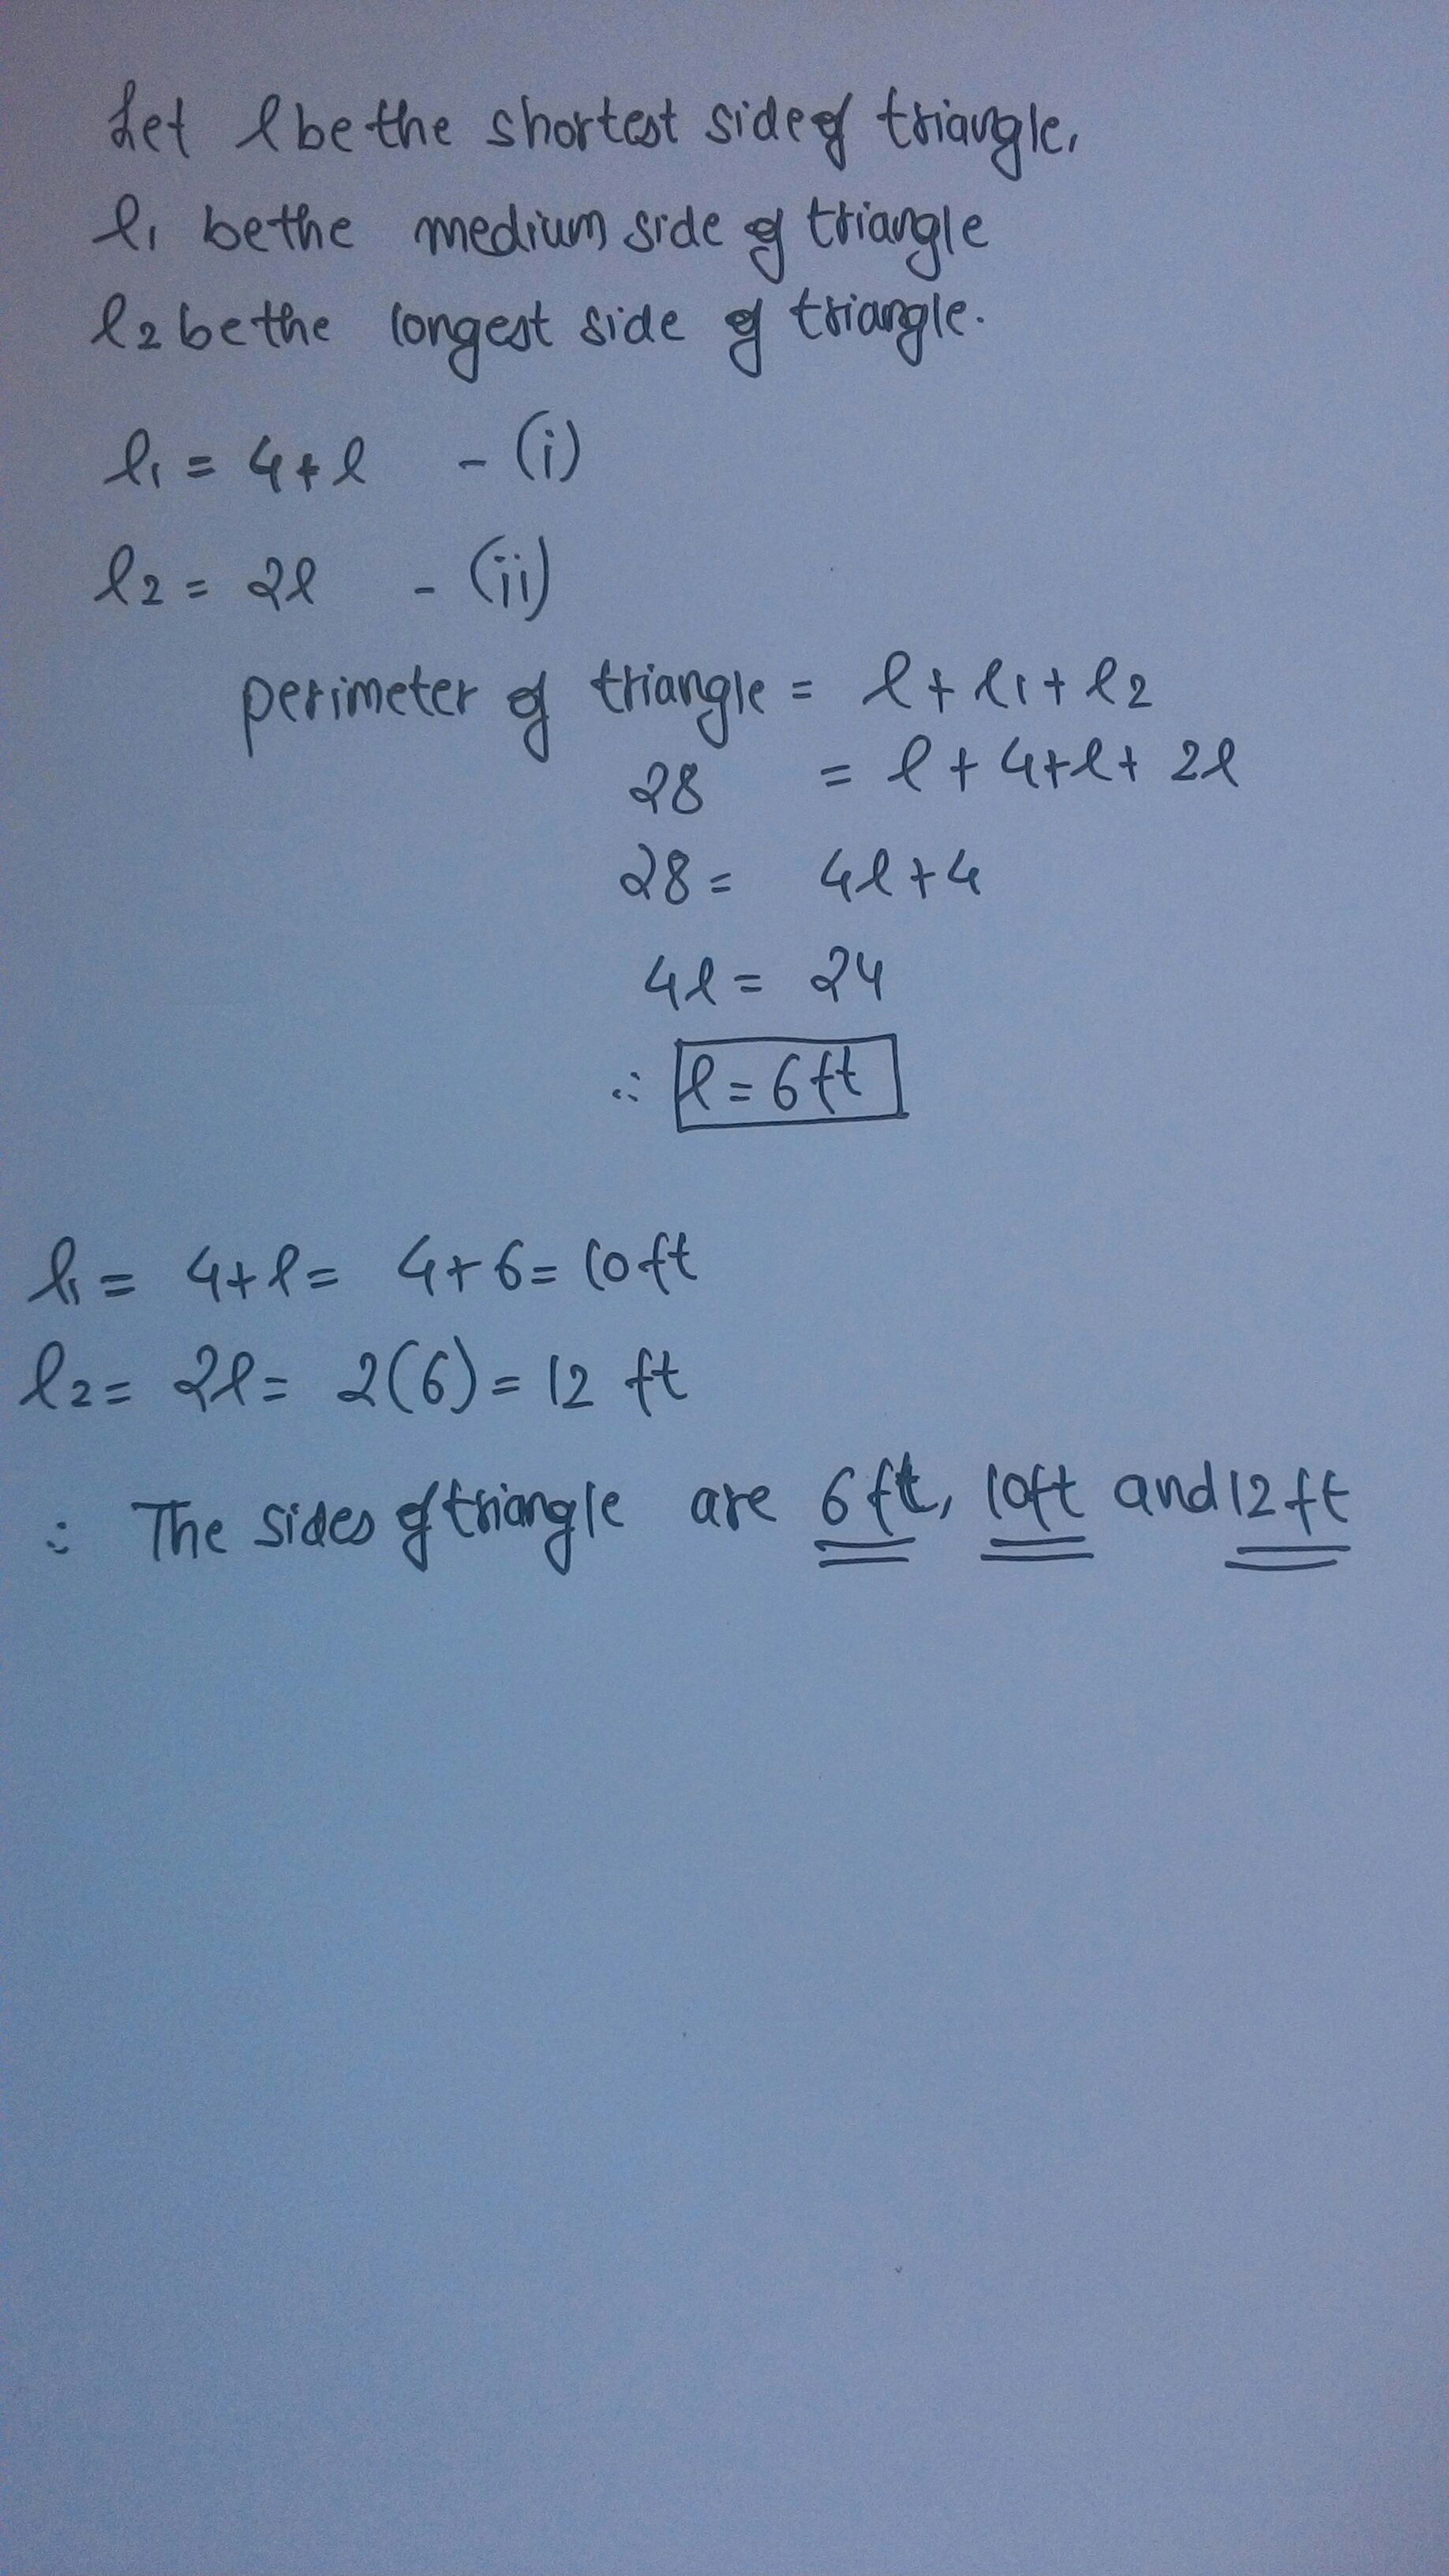 Let l be the shortest side of triangle,
l1 be the medium side of triangle
l2 be the longest side of triangle.
l1 = 4+l - (i)
l2 = 2l - (ii)
perimeter of triangle = l + l1 + l2
28 = l + 4+l+ 2l
28 = 4l+4
4l = 24
∴ l = 6ft
l1 = 4+l = 4+6 = 10ft
l2 = 2l = 2(6) = 12 ft
∴ The sides of triangle are 6ft, 10ft and 12ft